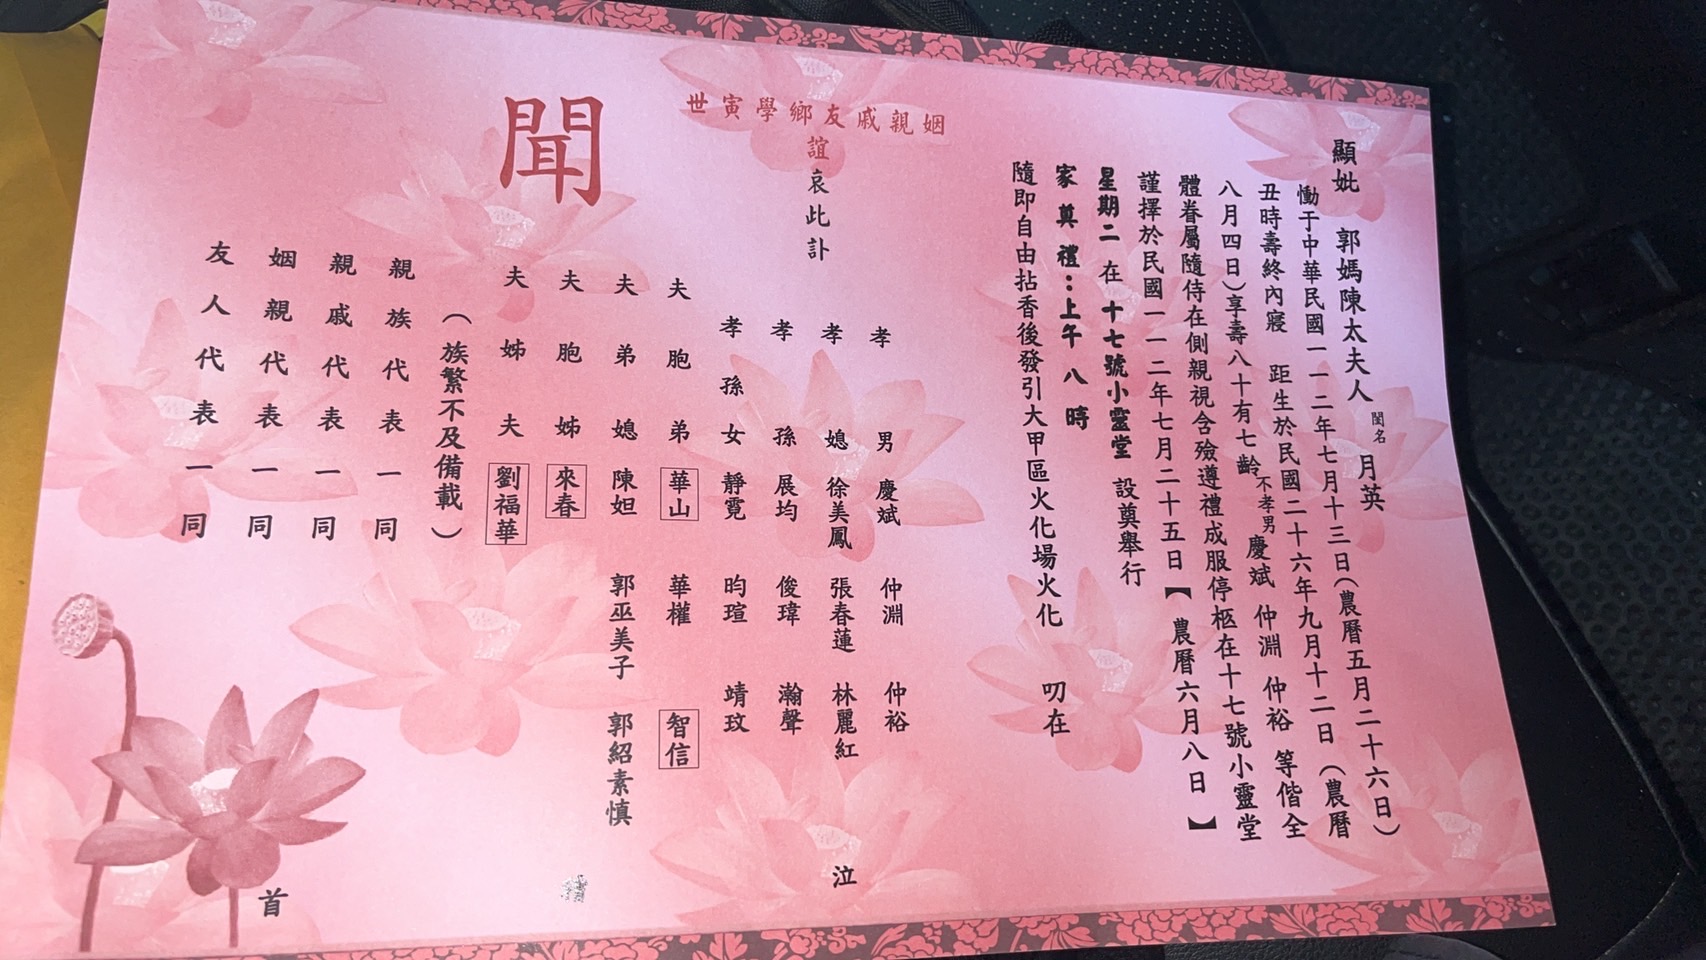 顯妣 郭媽陳太夫人 閨名 月英
慟于中華民國一一二年七月十三日(農曆五月二十六日)
丑時壽終內寢 距生於民國二十六年九月十二日(農曆
八月四日)享壽八十有七齡 不孝男 慶斌 仲淵 仲裕 等偕全
體眷屬隨侍在側親視含殮遵禮成服停柩在十七號小靈堂
謹擇於民國一一二年七月二十五日【農曆六月八日】
星期二 在 十七號小靈堂 設奠舉行
家奠禮：上午八時
隨即自由拈香後發引大甲區火化場火化 叨在
世寅學鄉友戚親姻
誼哀此訃
聞
孝男 慶斌 仲淵 仲裕
孝媳 徐美鳳 張春蓮 林麗紅
孝孫 展均 俊瑋 瀚聲
孝孫女 靜霓 昀瑄 靖玟
泣
夫胞弟 華山 華權 智信
夫弟媳 陳妲 郭巫美子 郭紹素慎
夫胞姊 來春
夫姊夫 劉福華
(族繁不及備載)
親族代表一同
親戚代表一同
姻親代表一同
友人代表一同
首